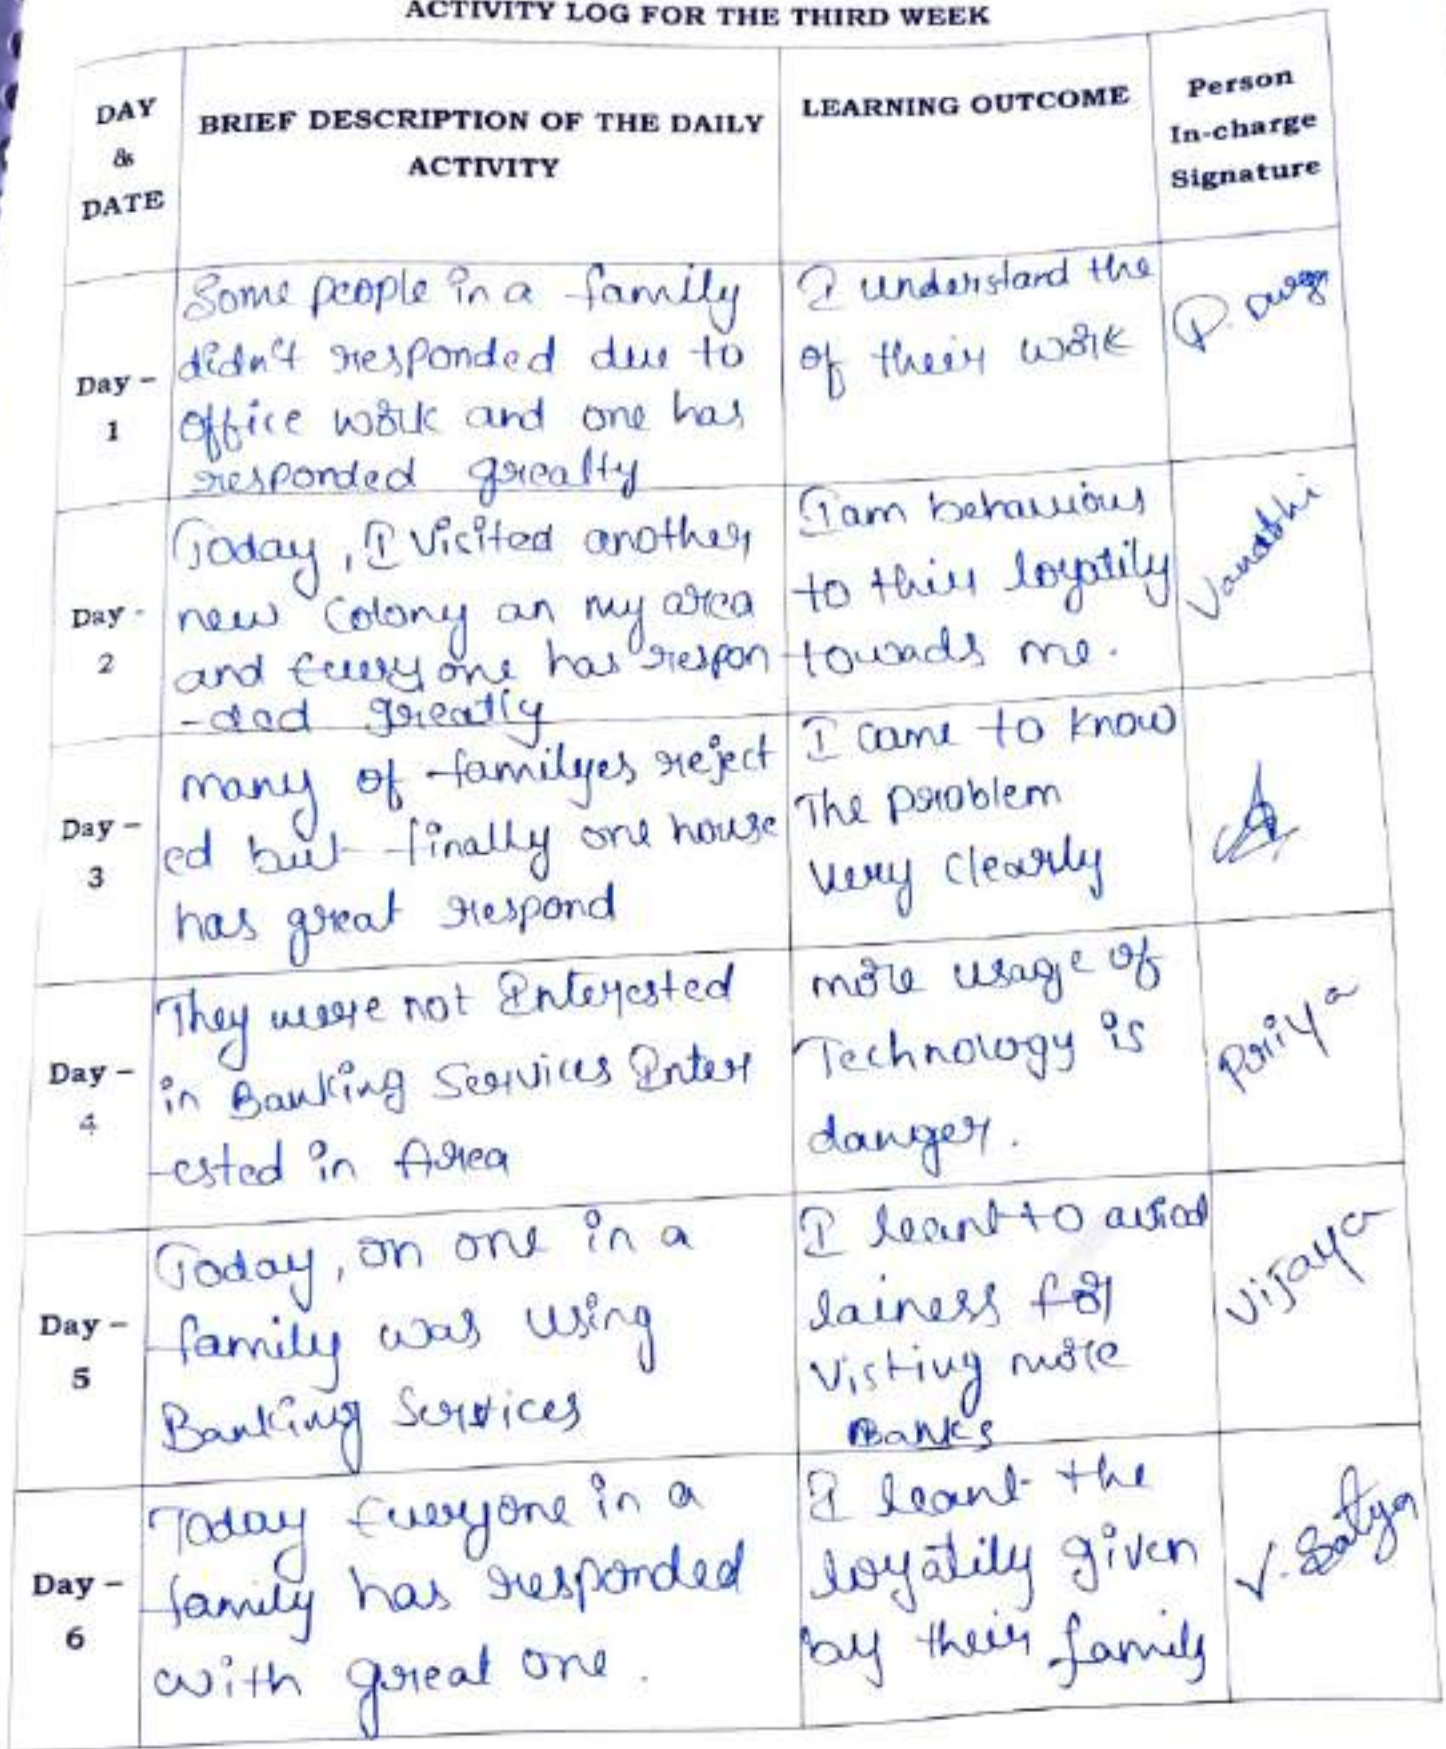 ACTIVITY LOG FOR THE THIRD WEEK
DAY
&
DATE
BRIEF DESCRIPTION OF THE DAILY
ACTIVITY
LEARNING OUTCOME
Person
In-charge
Signature
Day -
1
Some people in a family
didn't responded due to
office work and one has
responded grealty
I understand the
of their work
P.
Day -
2
Today, I visited another
new colony an my area
and Everyone has respon
-ded greatly
I am
to thier loyatily
towads me.
Day -
3
many of familyes reject
ed but finally one house
has great respond
I came to know
The problem
very clearly
Day -
4
They were not Interested
in Banking Services Inter
-ested in Area
more usage of
Technology is
danger.
Priya
Day -
5
Today, on one in a
family was using
Banking Services
I leant to
lainess for
Visting more
Banks
Vijaya
Day -
6
Today Everyone in a
family has responded
with great one.
I leant the
loyatily given
by their family
V. Satya